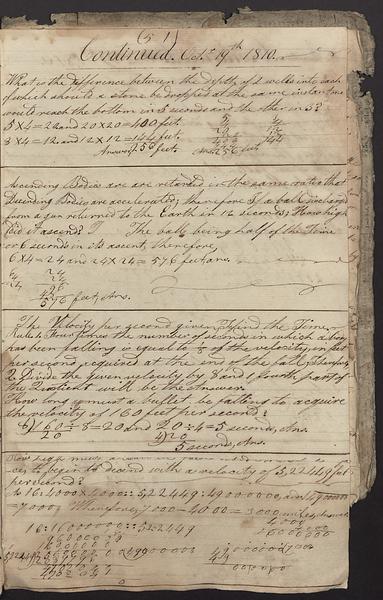 (51)
Continued. Oct. 19th 1810.
What is the difference between the depth of 2 wells into each
of which should a stone be dropped at the same instant one
would reach the bottom in 5 seconds and the other in 3?
5 X 4 = 20 and 20 X 20 = 400 feet.
3 X 4 = 12 and 12 X 12 = 144 feet.
Answer 256 feet.
Ascending Bodies are are retarded in the same ratio that
Decending Bodies are accelerated; therefore If a ball discharged
from a gun returned to the Earth in 12 seconds; How high
did it ascend? The ball being half of the Time
or 6 seconds in its ascent, therefore,
6 X 4 = 24 and 24 X 24 = 576 feet ans.
24
24
96
48
576 feet, Ans.
The Velocity per second given to find the Time
Rule 1. Four times the number of seconds in which a body
has been falling is equal to 1/8 of the velocity, in feet
per second acquired at the end of the fall, Therefore
2. Divide the given velocity by 8 and fourth part of
the Quotient will be the Answer.
How long must a bullet be falling to acquire
the velocity of 160 feet per second?
160 ÷ 8 = 20 and 20 ÷ 4 = 5 second, Ans.
20
4)20
5 second, Ans.
to begin to decend with a velocity of 5,22449 feet
per second?
As 16 : 4000 X 4000 :: 522449 : 49000000, and
= 7000 Wherefore, 7000 - 4000 = 3000 miles, answer.
16 : 16000000 :: 522449